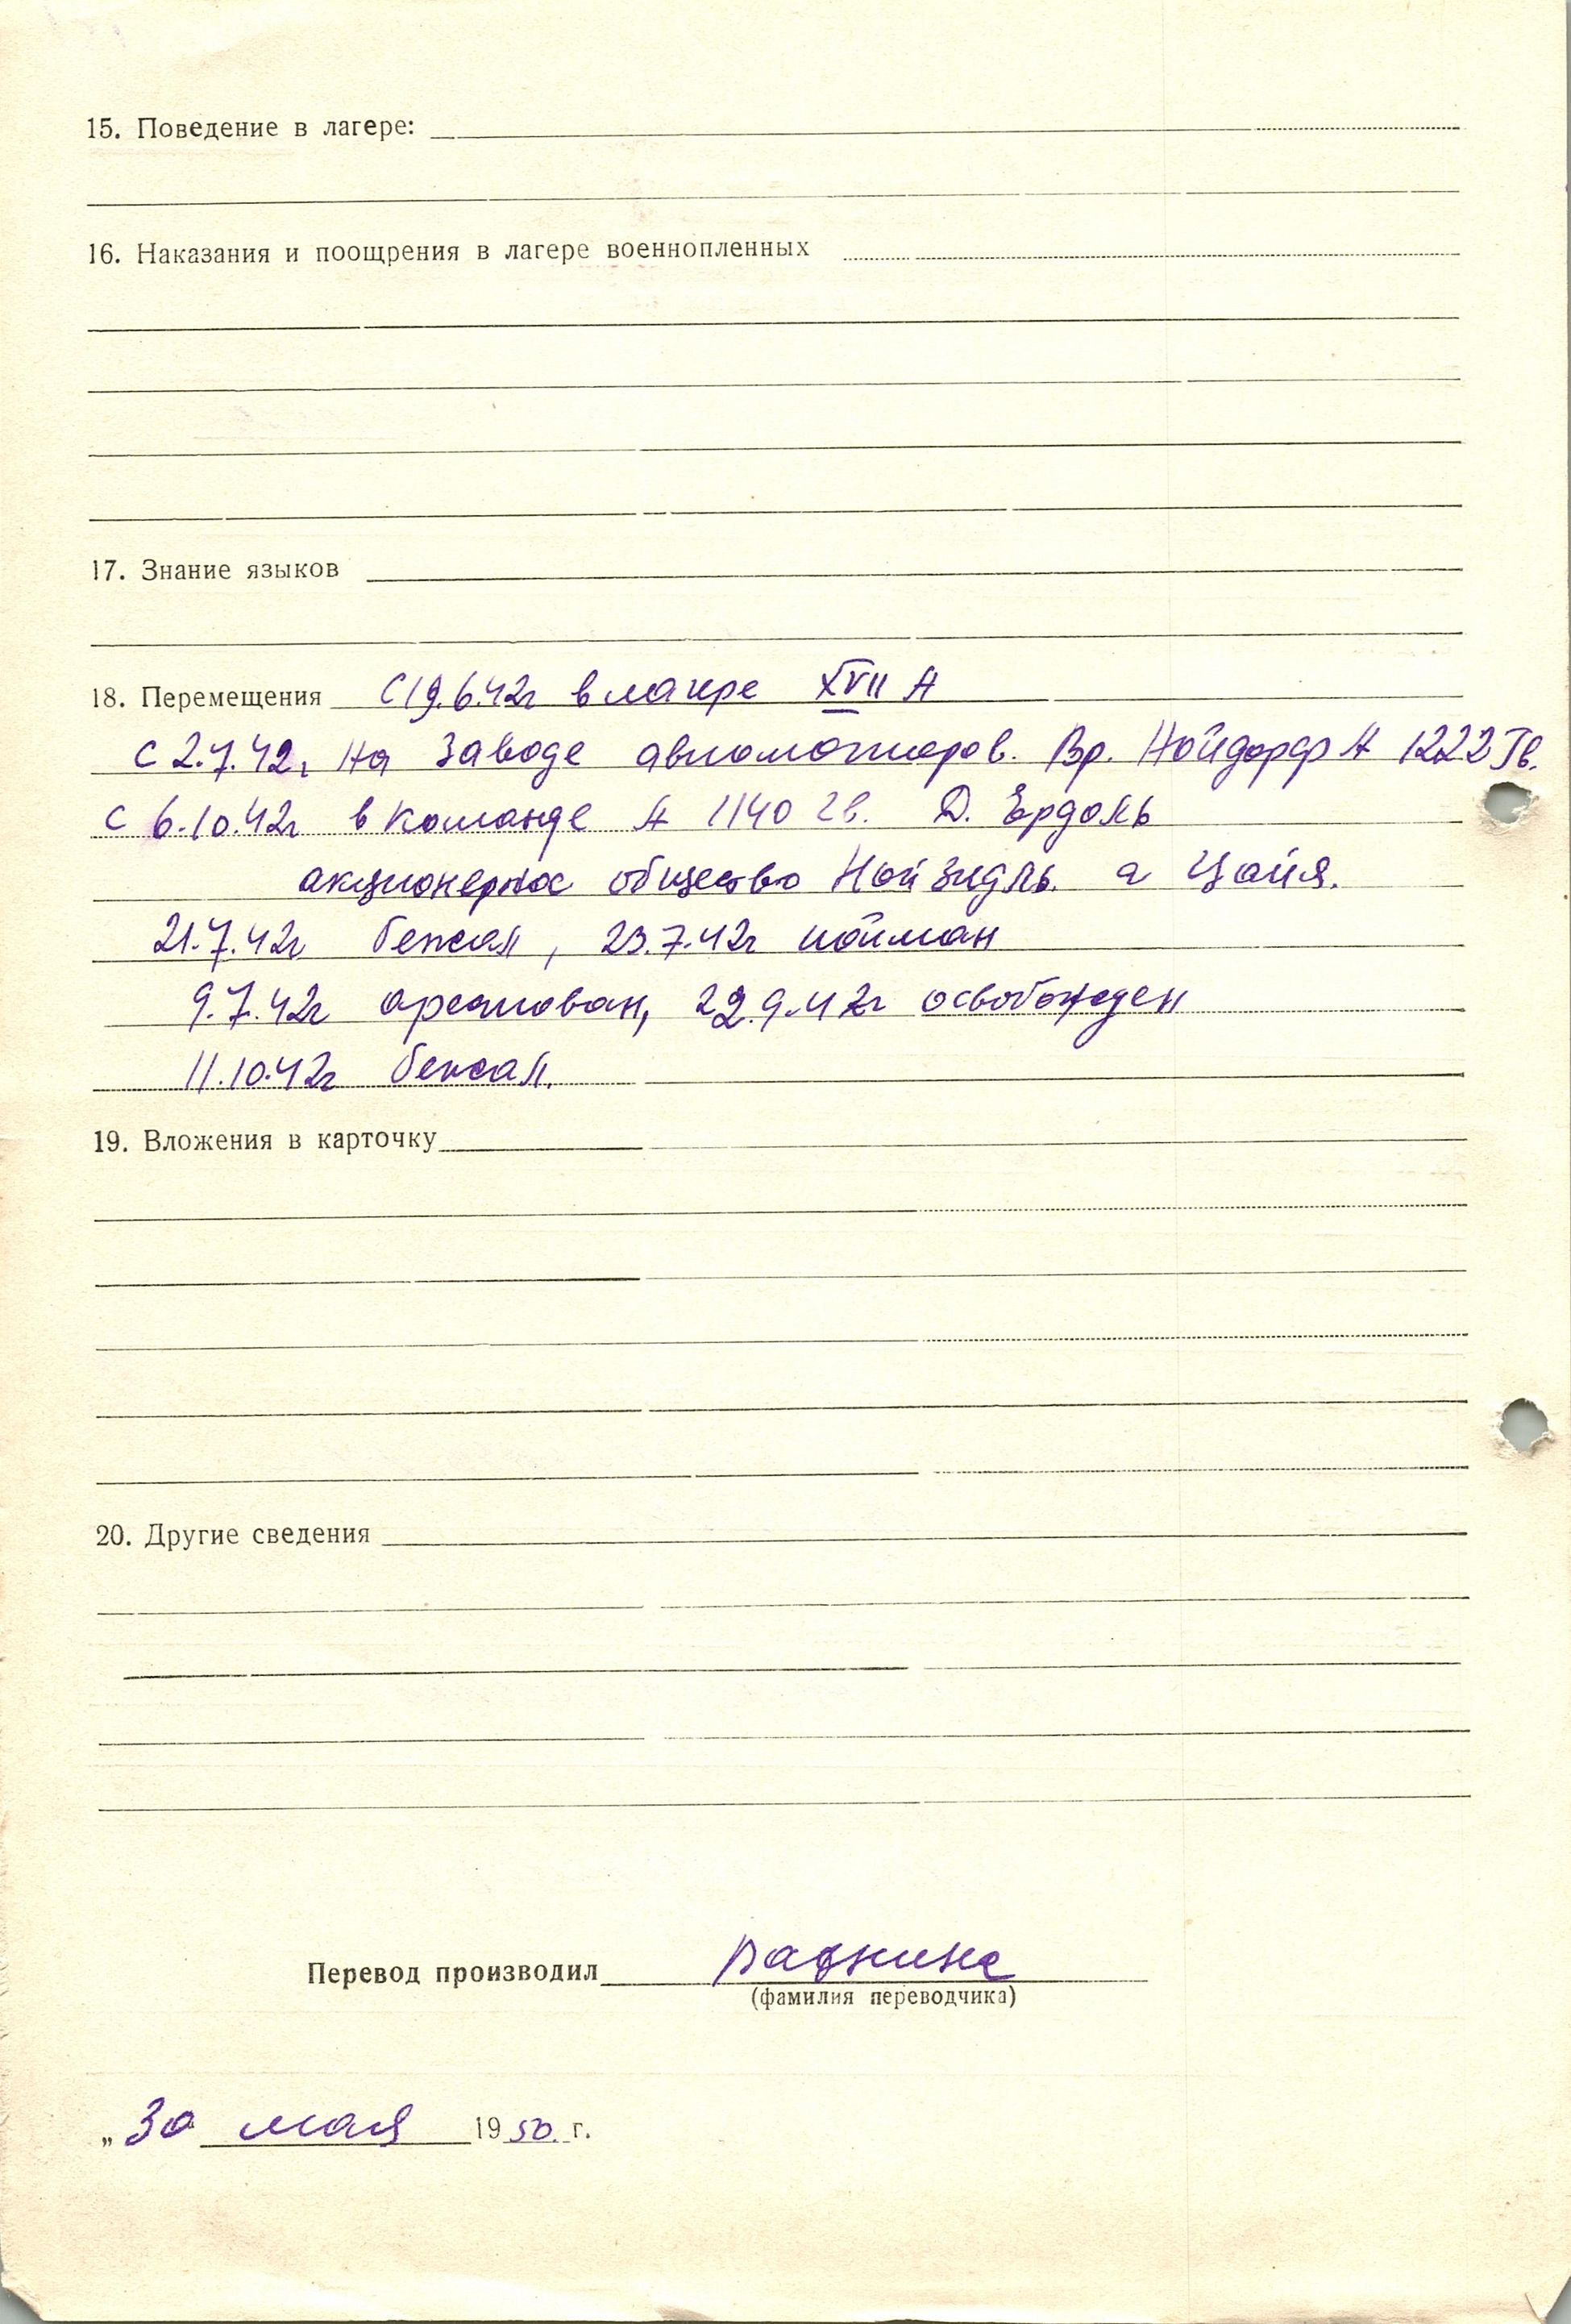 15. Поведение в лагере:
16. Наказания и поощрения в лагере военнопленных
17. Знание языков
18. Перемещения С 19.6.42г в лагере XVII А
с 2.7.42г на заводе авиомоторов. Вр. Нойдорф А 1222 Гв.
с 6.10.42г в команде А 1140 гв. Д. Ердоль
акционерное общество Нойзидль а Цайя.
21.7.42г бежал, 23.7.42г пойман
9.7.42г арестован, 22.9.42г освобожден
11.10.42г бежал.
19. Вложения в карточку
20. Другие сведения
Перевод производил
(фамилия переводчика)
„30 мая 1950 г.